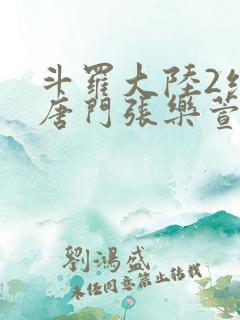 斗羅大陸2
唐門張樂萱
劉鴻盛
未經同意禁止轉載